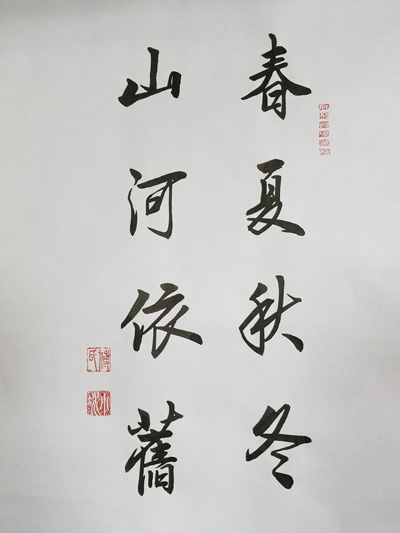 春夏秋冬
山河依舊